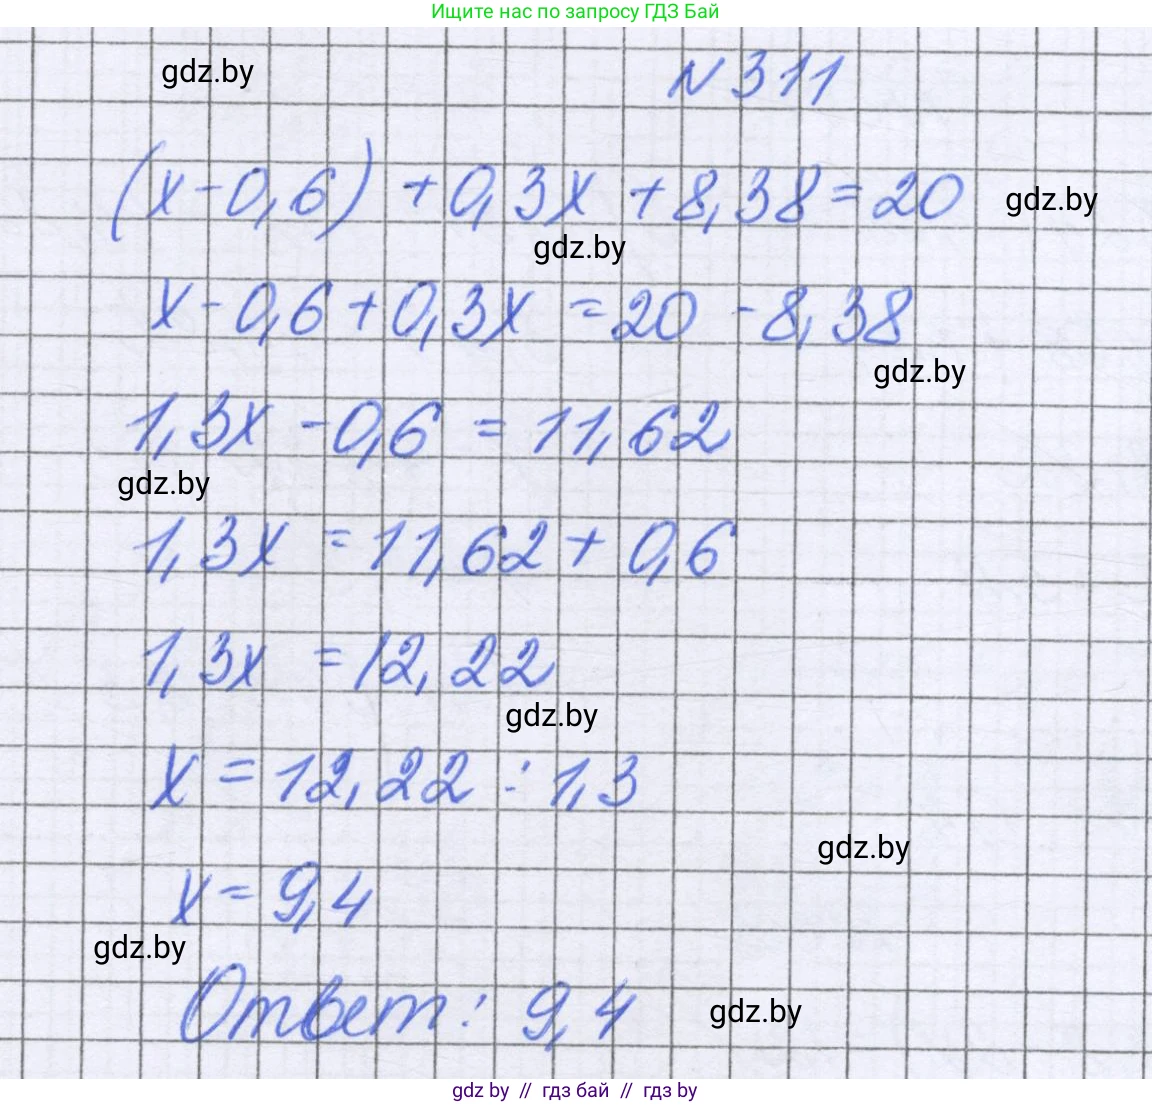 Ищите нас по запросу ГДЗ Бай
gdz.by
N 311
(x-0,6) +0,3x +8,38=20
gdz.by
gdz.by
x-0,6+0,3x =20 -8,38
gdz.by
1,3x -0,6 = 11,62
gdz.by
1,3x = 11,62 + 0,6
1,3x = 12,22
gdz.by
x = 12,22 : 1,3
gdz.by
x = 9,4
gdz.by
Ответ: 9,4
gdz.by
gdz by // гдз бай // гдз by